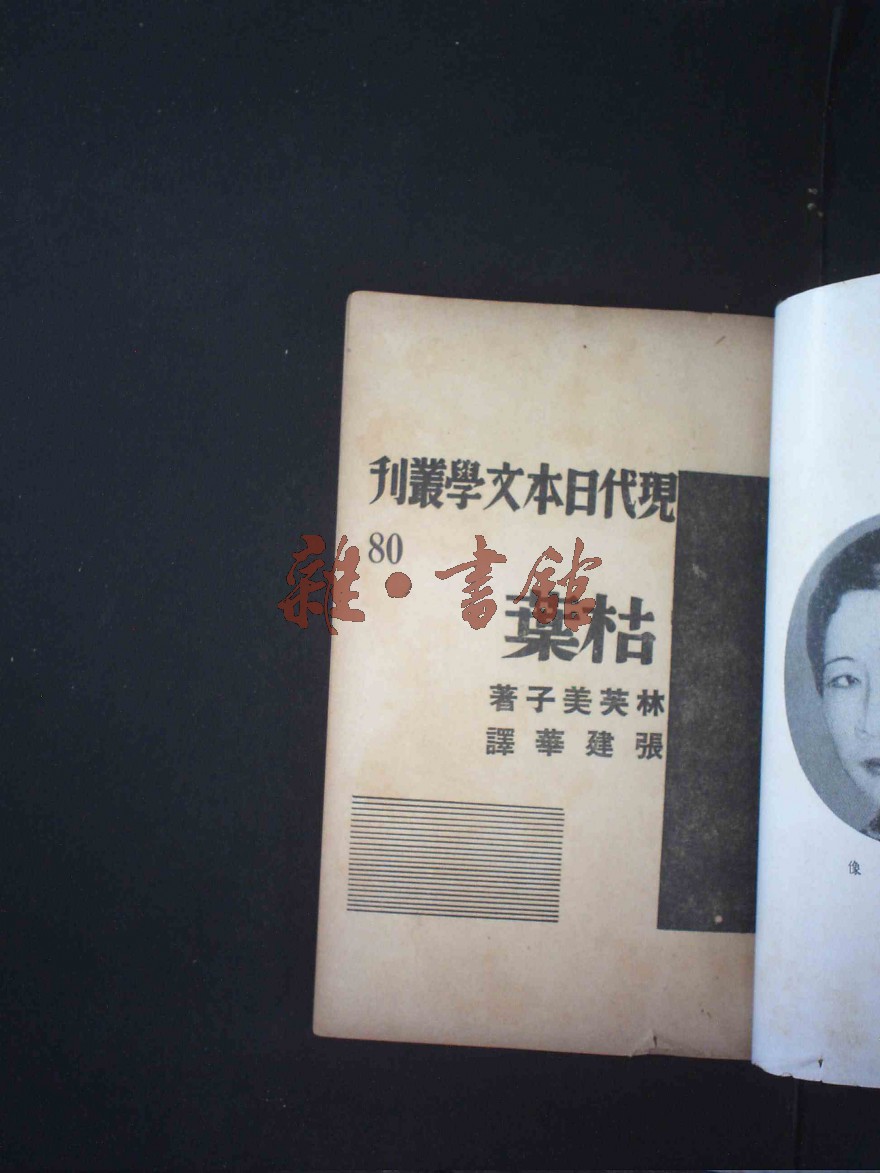 現代日本文學叢刊
80
枯葉
林芙美子著
張建華譯
雜·書館
像